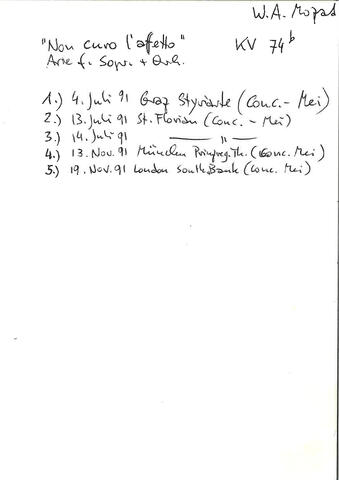 W. A. Mozart
"Non curo l'affetto" KV 74b
Arie f. Sopr. + Orch.
1.) 4. Juli 91 Graz Styriarte (Conc. - Mei)
2.) 13. Juli 91 St. Florian (Conc. - Mei)
3.) 14. Juli 91 — " —
4.) 13. Nov. 91 München Prinzreg. Th. (Conc. Mei)
5.) 19. Nov. 91 London South Bank (Conc. Mei)